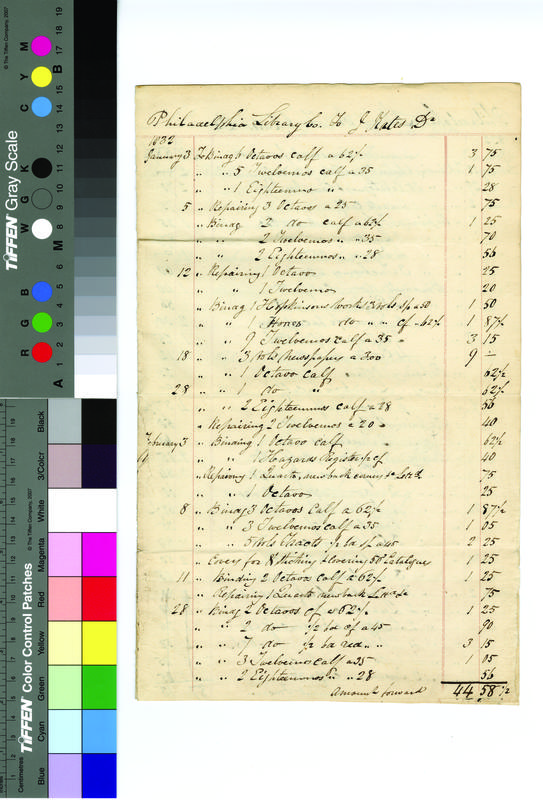 Philadelphia Library Co. To J Yates Dr
1832
January 3 To Bindg 6 Octavos calf a 62½ 3 75
" " 5 Twelvemos calf a 35 1 75
" " 1 Eighteenmo " 28
5 " Repairing 3 Octavos a 25 75
" Bindg 2 do calf a 62½ 1 25
" " 2 Twelvemos " " 35 70
" " 2 Eighteenmos " " 28 56
12 " Repairing 1 Octavo 25
" " 1 Twelvemo 20
" Bindg 1 Hopkinsons Works 3 Vols a 50 1 50
" " 1 do " " cf " 62½ 1 87½
" " 9 Twelvemos calf a 35 " 3 15
18 " " 3 Vols Newspapers a 300 9 –
" " 1 Octavo calf " 62½
28 " " 1 do " 62½
" " 2 Eighteenmos calf a 28 56
" Repairing 2 Twelvemos a 20 " 40
February 3 " Binding 1 Octavo calf 62½
" " 1 Hazards Register ½ cf 40
" Repairing 1 Quarto, new back 75
" " 1 Octavo 25
8 " Bindg 3 Octavos Calf a 62½ 1 87½
" " 3 Twelvemos calf a 35 1 05
" " 5 Vols Tracts ½ bd a 45 2 25
" Covers for Stitching & Covering 50 Catalogue 1 25
11 " Binding 2 Octavos calf a 62½ 1 25
" Repairing 1 Quarto new back 75
28 " Bindg 2 Octavos cf a 62½ 1 25
" " 2 do ½ bd cf a 45 90
" " 7 do ½ bd " " 3 15
" " 3 Twelvemos calf a 35 1 05
" " 2 Eighteenmos " " 28 56
Amount forward 44 58½
TIFFEN Gray Scale
© The Tiffen Company, 2007
R G B W G K C Y M
A 1 2 3 4 5 6 M 8 9 10 11 12 13 14 15 B 17 18 19
TIFFEN Color Control Patches
© The Tiffen Company, 2007
Centimetres
Blue Cyan Green Yellow Red Magenta White 3/Color Black